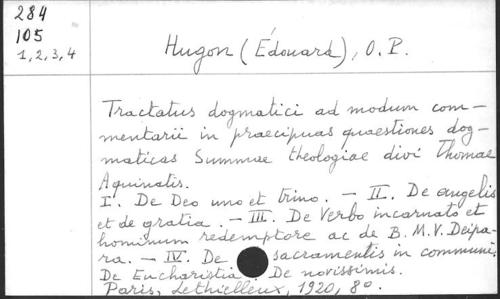 284
105
1, 2, 3, 4
Hugon (Édouard), O. P.
Tractatus dogmatici ad modum com-
mentarii in praecipuas quaestiones dog-
maticas Summae theologiae divi Thomae
Aquinatis.
I. De Deo uno et trino. — II. De angelis
et de gratia. — III. De Verbo incarnato et
hominum redemptore ac de B. M. V. Deipa-
ra. — IV. De sacramentis in communi,
De Eucharistia. De novissimis.
Paris, Lethielleux, 1920, 8o.